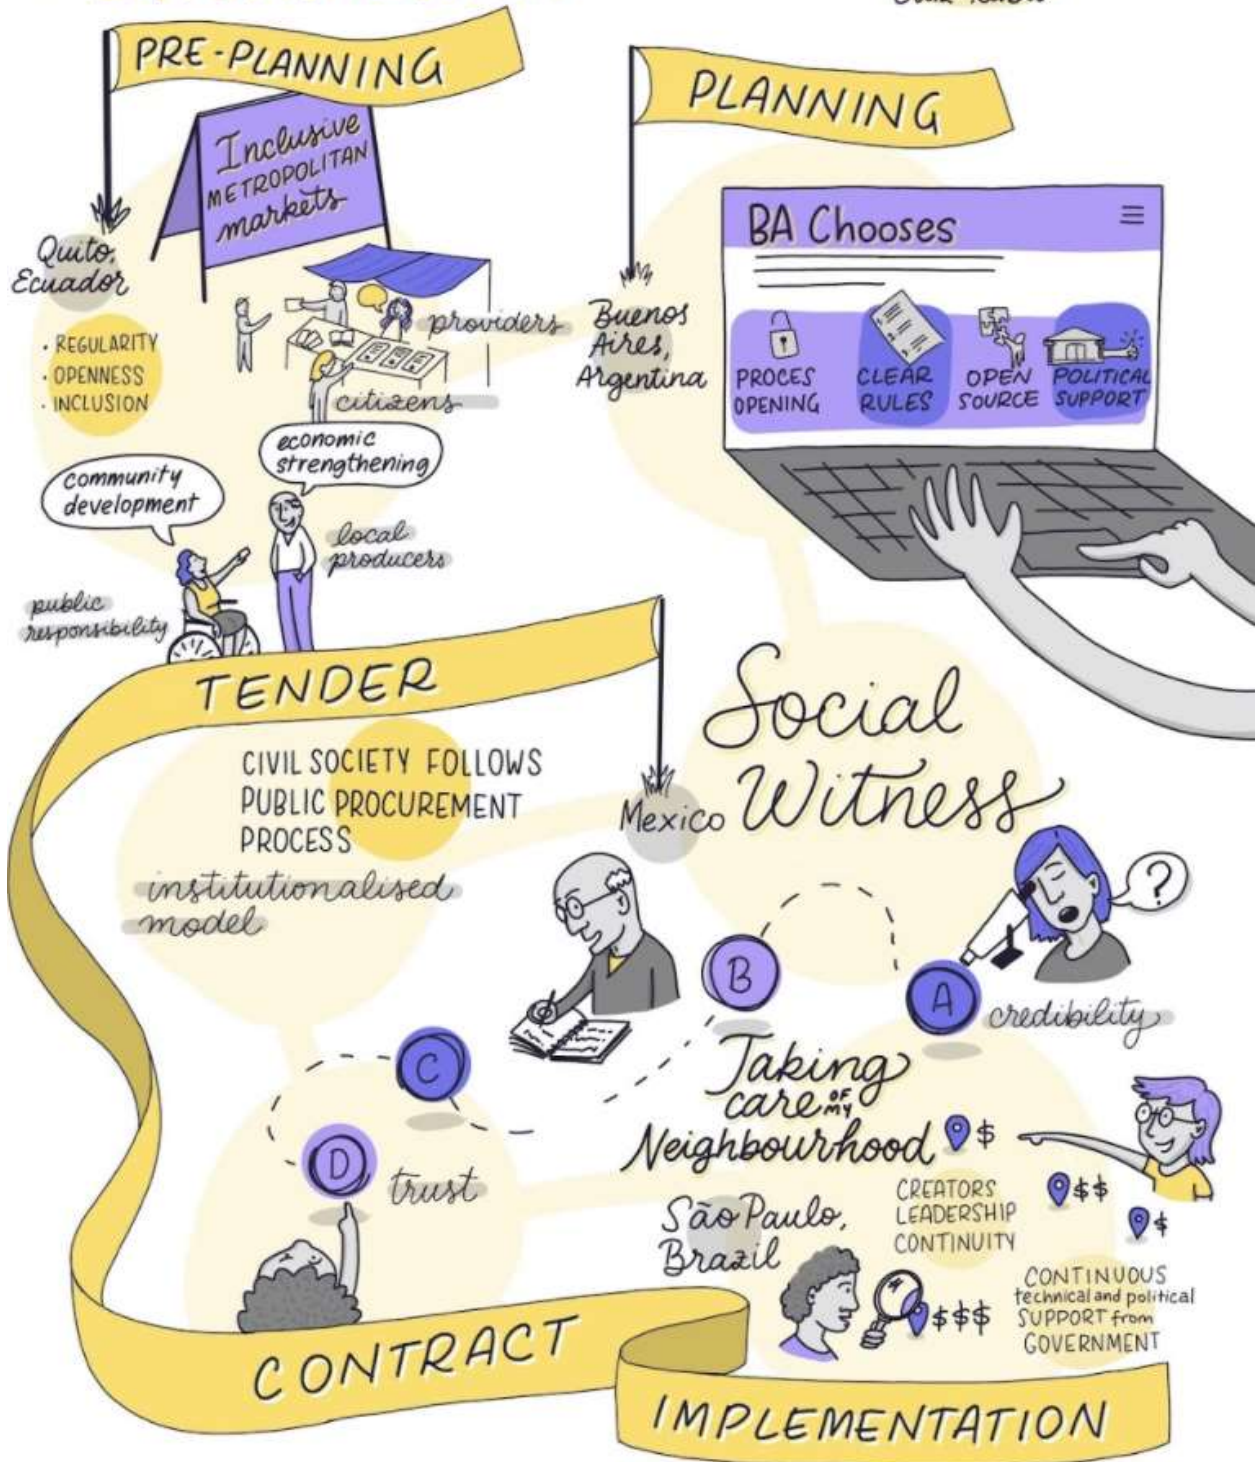 PRE-PLANNING
Inclusive
METROPOLITAN
markets
Quito,
Ecuador
• REGULARITY
• OPENNESS
• INCLUSION
providers
citizens
economic
strengthening
community
development
local
producers
public
responsibility
PLANNING
BA Chooses
Buenos
Aires,
Argentina
PROCES
OPENING
CLEAR
RULES
OPEN
SOURCE
POLITICAL
SUPPORT
TENDER
CIVIL SOCIETY FOLLOWS
PUBLIC PROCUREMENT
PROCESS
institutionalised
model
Mexico
Social
Witness
?
A
credibility
B
C
D
trust
Taking
care OF MY
Neighbourhood
$
$$
$
São Paulo,
Brazil
CREATORS
LEADERSHIP
CONTINUITY
$$$
CONTINUOUS
technical and political
SUPPORT from
GOVERNMENT
CONTRACT
IMPLEMENTATION